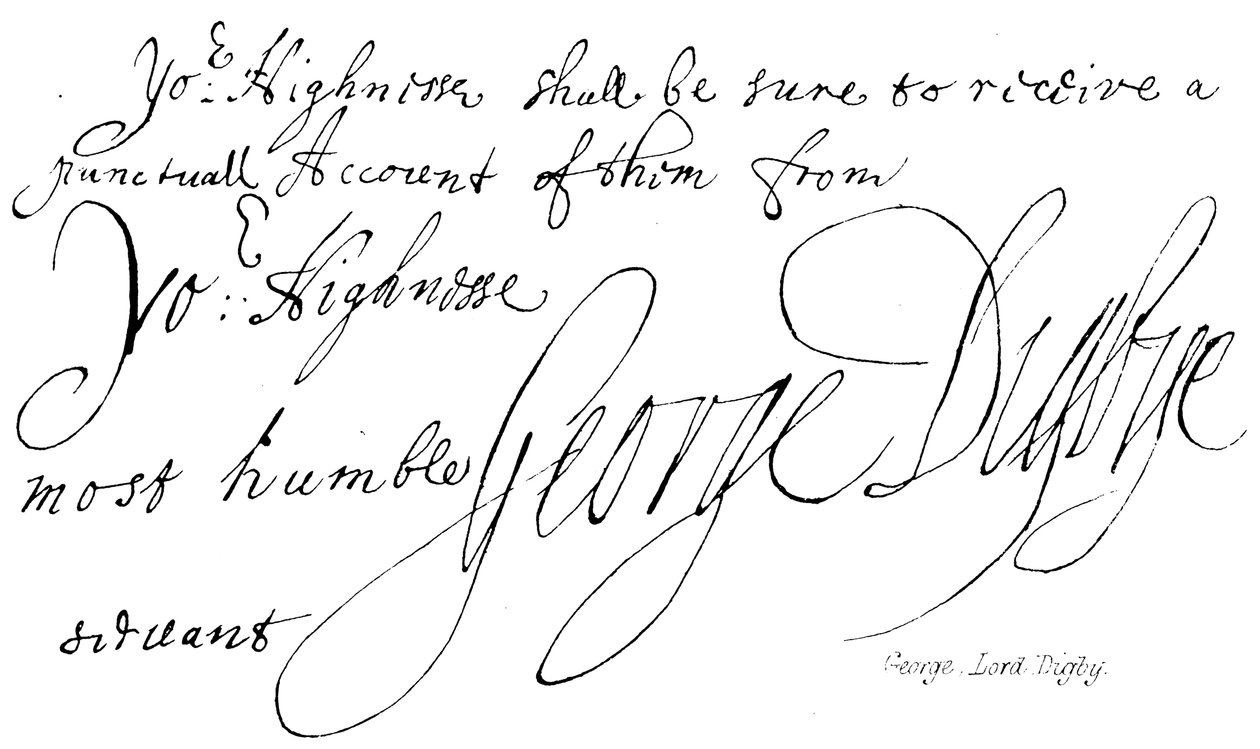 Yo:ᵉ Highnesse shall be sure to receive a
punctuall Account of them from
Yo::ᵉ Highnesse
most humble
servant
George Digbye
George, Lord Digby.